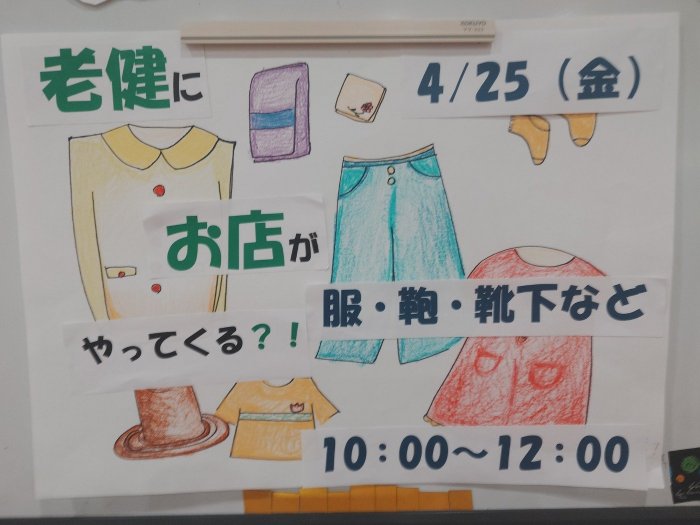 KOKUYO
老健に
4/25（金）
お店が
服・鞄・靴下など
やってくる？！
10：00～12：00